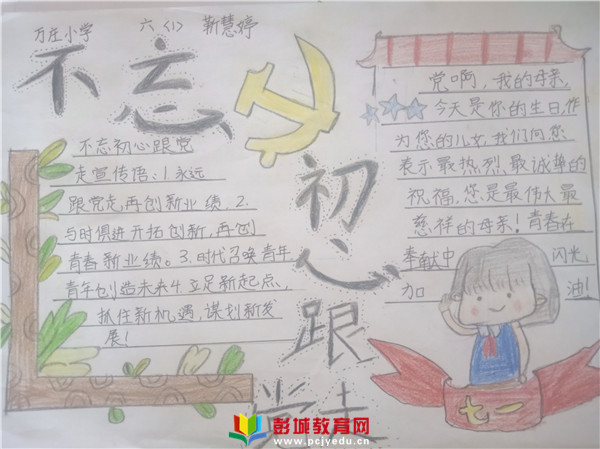 万庄小学 六〈1〉 靳慧婷
不忘
初心
跟
党走
不忘初心跟党
走宣传语:1.永远
跟党走,再创新业绩.2.
与时俱进开拓创新,再创
青春新业绩。3.时代召唤青年
青年创造未来4.立足新起点,
抓住新机遇,谋划新发
展!
党啊,我的母亲,
今天是你的生日,作
为您的儿女,我们向您
表示最热烈、最诚挚的
祝福,您是最伟大最
慈祥的母亲!青春在
奉献中 闪光
加 油!
七一
彭城教育网
www.pcjyedu.cn